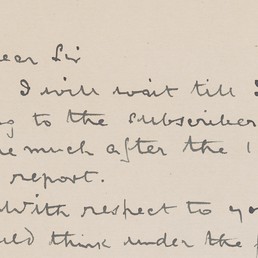 ear Sir
I will wait till
g to the subscriber
e much after the 1
report.
With respect to yo
uld think under the